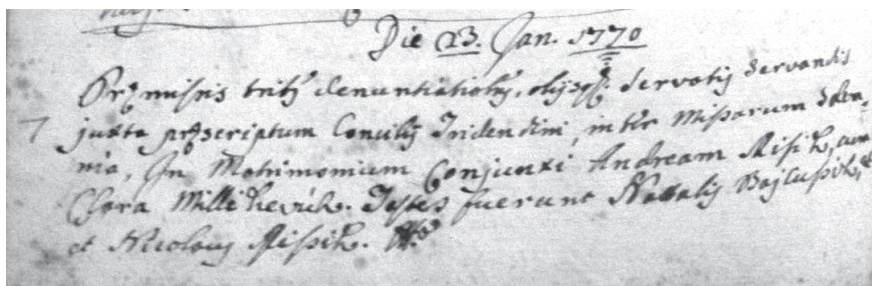 Die 23. Jan. 1770
Præmissis tribȝ denuntiationibȝ, alijsqȝ servatis servandis
7 juxta præscriptum Concilij Tridentini, inter Missarum Solem-
nia, In Matrimonium Conjunxi Andream Misik, cum
Clara Millikevich. Testes fuerunt Natalis
et Nicolaus Missik.